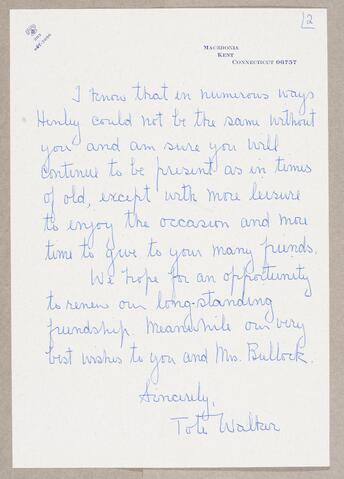 2
MACEDONIA
KENT
CONNECTICUT 06757
I know that in numerous ways
Henley could not be the same without
you and am sure you will
continue to be present as in times
of old, except with more leisure
to enjoy the occasion and more
time to give to your many friends.
We hope for an opportunity
to renew our long-standing
friendship. Meanwhile our very
best wishes to you and Mrs. Bullock.
Sincerely,
Tote Walker